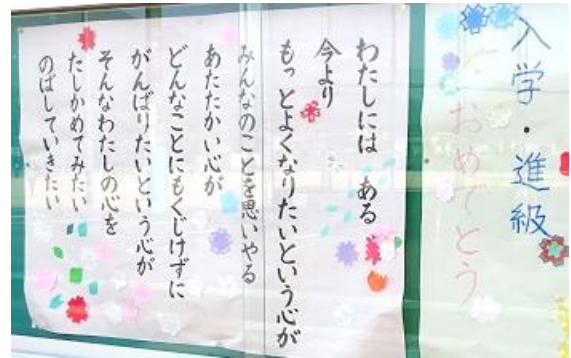 入学・進級
おめでとう
わたしには ある
今より
もっとよくなりたいという心が
みんなのことを思いやる
あたたかい心が
どんなことにもくじけずに
がんばりたいという心が
そんなわたしの心を
たしかめてみたい
のばしていきたい